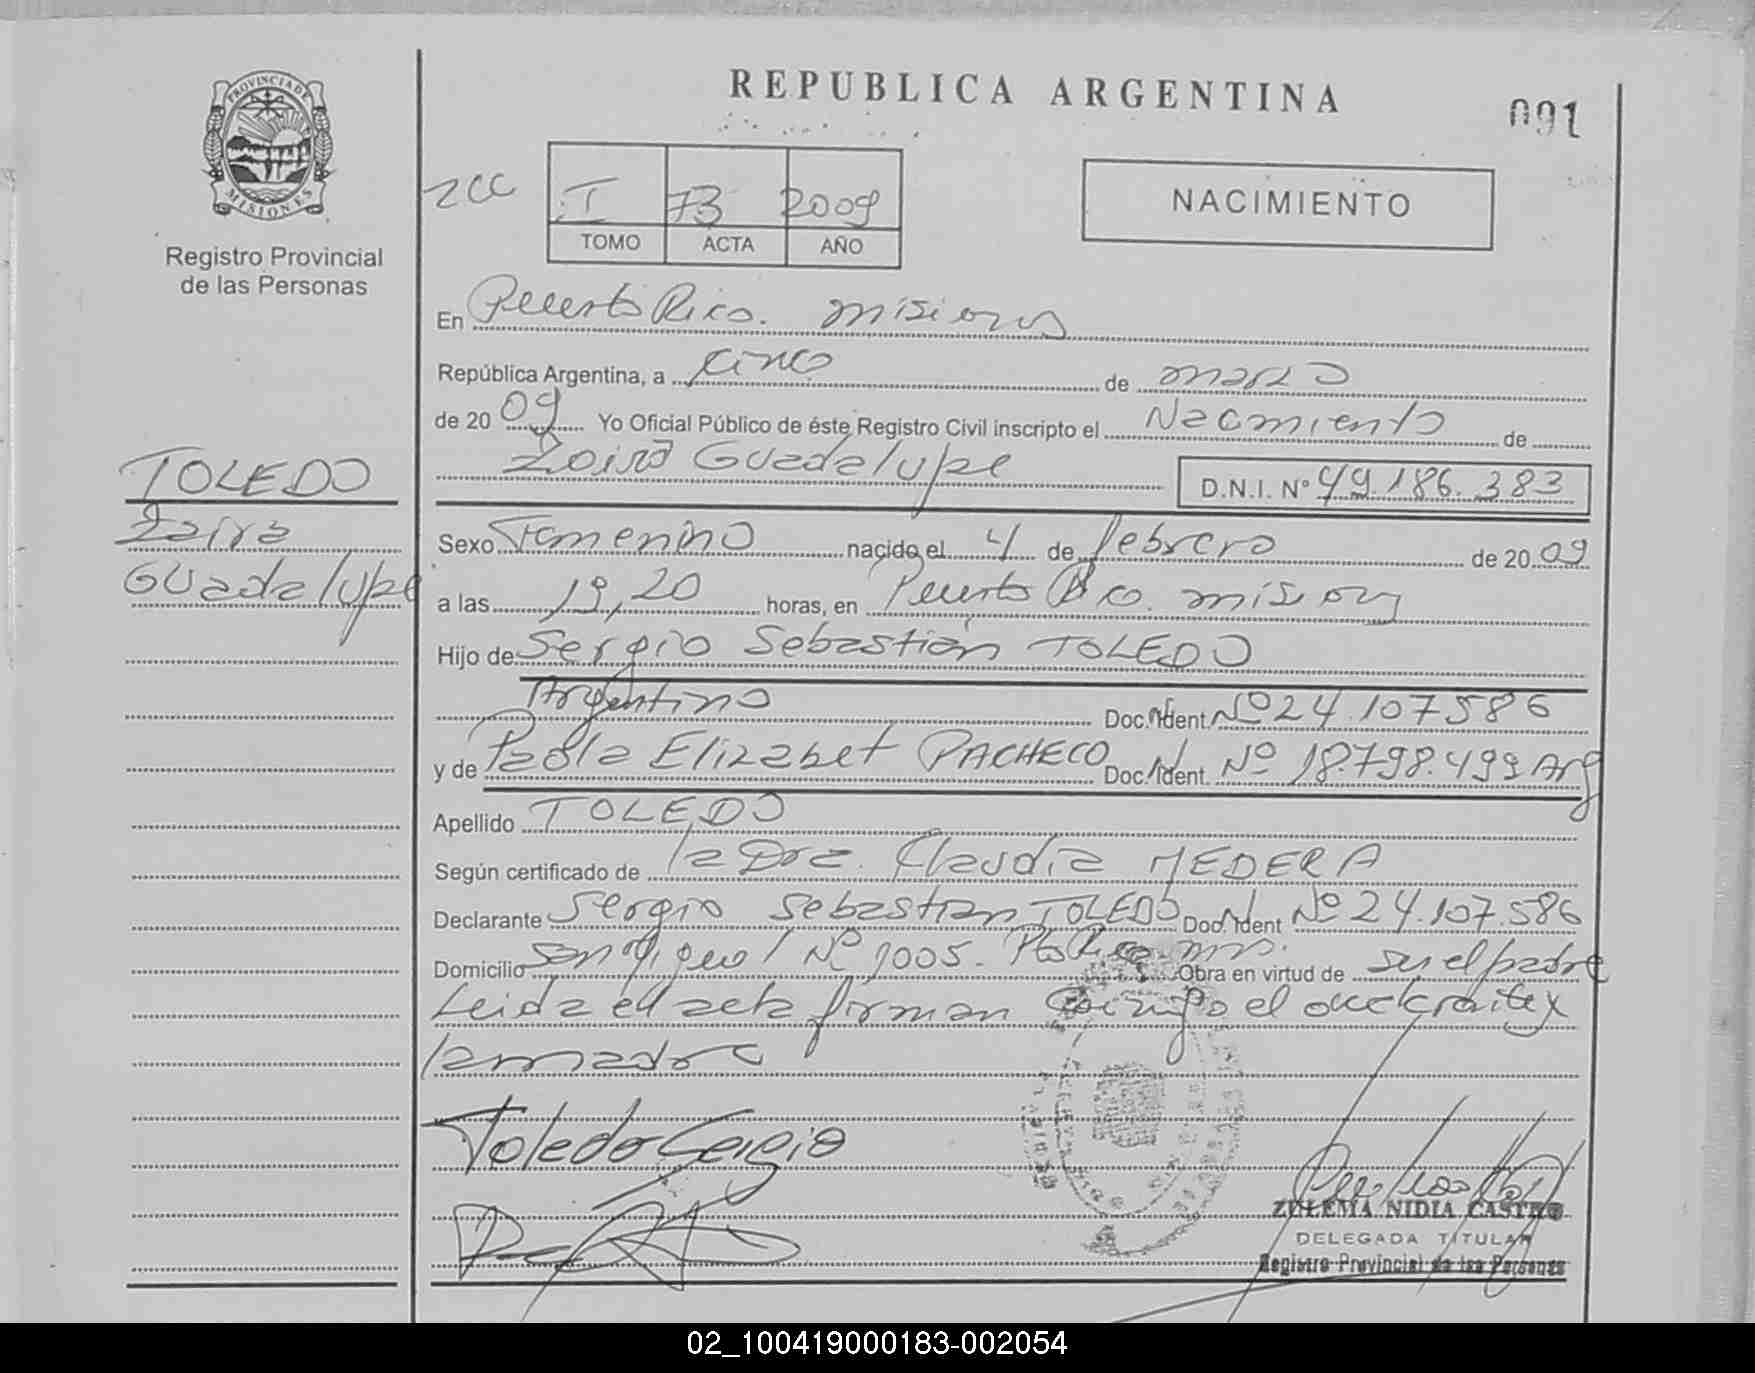 REPUBLICA ARGENTINA
091
PROVINCIA DE
MISIONES
Registro Provincial
de las Personas
2CC
I 73 2009
TOMO ACTA AÑO
NACIMIENTO
En Puerto Rico. Misiones
República Argentina, a cinco de marzo
de 20 09 Yo Oficial Público de éste Registro Civil inscripto el Nacimiento de
Zaira Guadalupe D.N.I. Nº 49.186.383
TOLEDO
Zaira
Guadalupe
Sexo Femenino nacido el 4 de febrero de 20 09
a las 19,20 horas, en Puerto Rico. Misiones
Hijo de Sergio Sebastián TOLEDO
Argentino Doc. Ident. Nº 24.107.586
y de Paola Elizabet PACHECO Doc. Ident. Nº 18.798.499 Arg
Apellido TOLEDO
Según certificado de la Dra. Claudia MEDERA
Declarante Sergio Sebastian TOLEDO Doc. Ident Nº 24.107.586
Domicilio San Miguel Nº 1005. Pto Rico Mns. Obra en virtud de ser el padre
Leida el acta firman conmigo el declarante y
la madre
Toledo Sergio
ZULEMA NIDIA CASTRO
DELEGADA TITULAR
Registro Provincial de las Personas
02_100419000183-002054